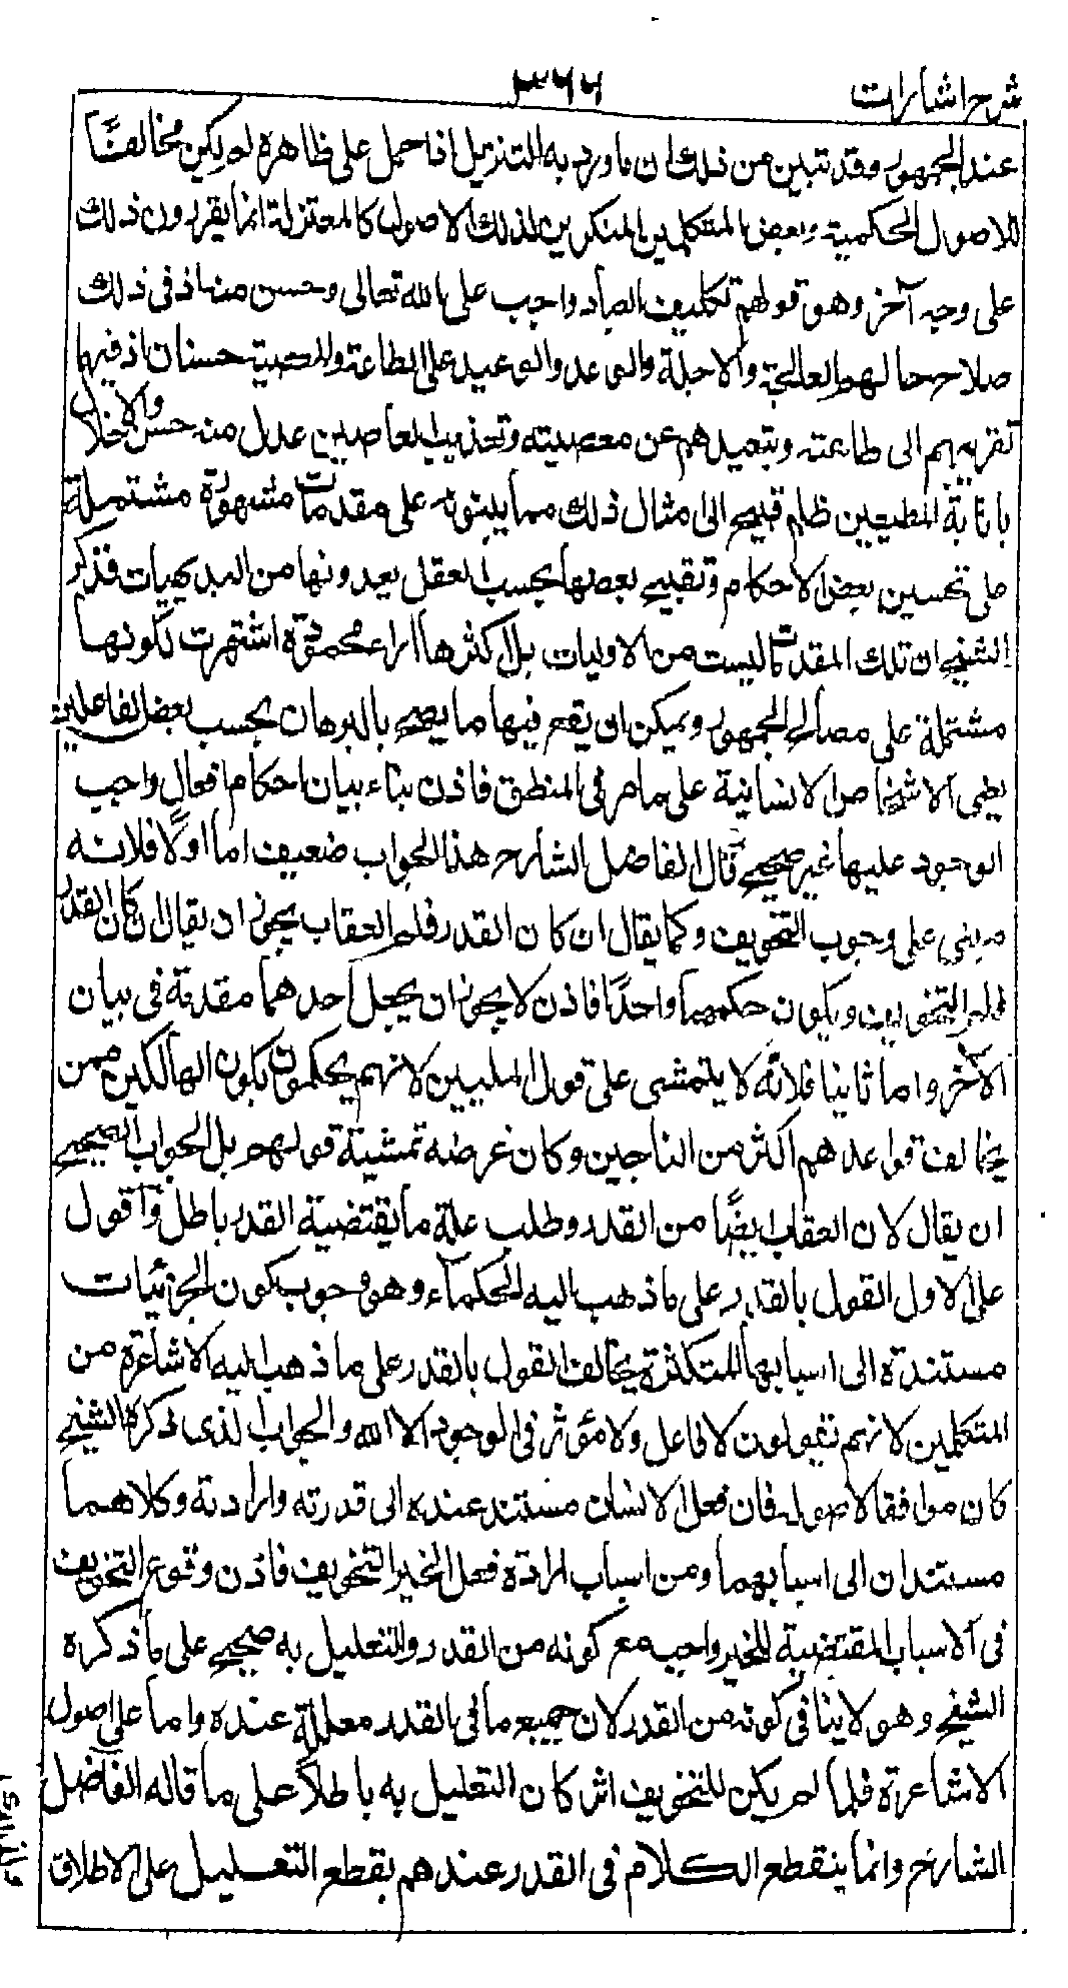 شرح اشارات
٣٦٦
عند الجمهور وقد تبين من ذلك ان ما ورد به التنزيل اذا حمل على ظاهره لم يكن مخالفًا
للاصول الحكمية وبعض المتكلمين المنكرين لذلك الاصول كالمعتزلة انما يقررون ذلك
على وجه آخر وهو قولهم تكليف العباد واجب على الله تعالى وحسن منه اذ فى ذلك
صلاح حالهم العاجلة والاجلة والوعد والوعيد على الطاعة والمعصية حسنان اذ فيهما
تقريبهم الى طاعته وبتعيدهم عن معصيته وتعذيب العاصين عدل منه حسن والاخلال
باثابة المطيعين ظلم قبيح الى امثال ذلك مما يبنونه على مقدمات مشهورة مشتملة
على تحسين بعض الاحكام وتقبيح بعضها بحسب العقل يعدونها من البديهيات فذكر
الشيخ ان تلك المقدمات ليست من الاوليات بل اكثرها اراء محمودة اشتهرت لكونها
مشتملة على مصالح الجمهور ويمكن ان يقع فيها ما يصح بالبرهان بحسب بعض الفاعلين
يعنى الاشخاص الانسانية على ما مر فى المنطق فاذن بناء بيان احكام افعال واجب
الوجود عليها غير صحيح قال الفاضل الشارح هذا الجواب ضعيف اما اولًا فلانه
مبنى على وجوب التخويف وكما يقال ان كان القدر فلم العقاب يجوز ان يقال ان كان القدر
فلم التخويف ويكون حكمهما واحدًا فاذن لا يجوز ان يجعل احدهما مقدمة فى بيان
الآخر واما ثانيا فلانه لا يتمشى على قول المليين لانهم يحكمون بكون الهالكين ممن
يخالف قواعدهم اكثر من الناجين وكان غرضه تمشية قولهم بل الجواب الصحيح
ان يقال لان العقاب ايضًا من القدر وطلب علة ما يقتضية القدر باطل واقول
على الاول القول بالقدر على ما ذهب اليه الحكماء وهو وجوب كون الجزئيات
مستندة الى اسبابها المتكثرة يخالف القول بالقدر على ما ذهب اليه الاشاعرة من
المتكلمين لانهم يقولون لا فاعل ولا مؤثر فى الوجود الا الله والجواب الذى ذكره الشيخ
كان موافقا لاصوله فان فعل الانسان مستند عنده الى قدرته وارادته وكلاهما
مستندان الى اسبابهما ومن اسباب ارادة فعل الخير التخويف فاذن وقوع التخويف
فى الاسباب المقتضية للخير واجب مع كونه من القدر والتعليل به صحيح على ما ذكره
الشيخ وهو لاينافى كونه من القدر لان جميع ما فى القدر معللة عنده واما على اصول
الاشاعرة فلما لم يكن للتخويف اثر كان التعليل به باطلًا على ما قاله الفاضل
الشارح وانما ينقطع الكلام فى القدر عندهم بقطع التعليل على الاطلاق